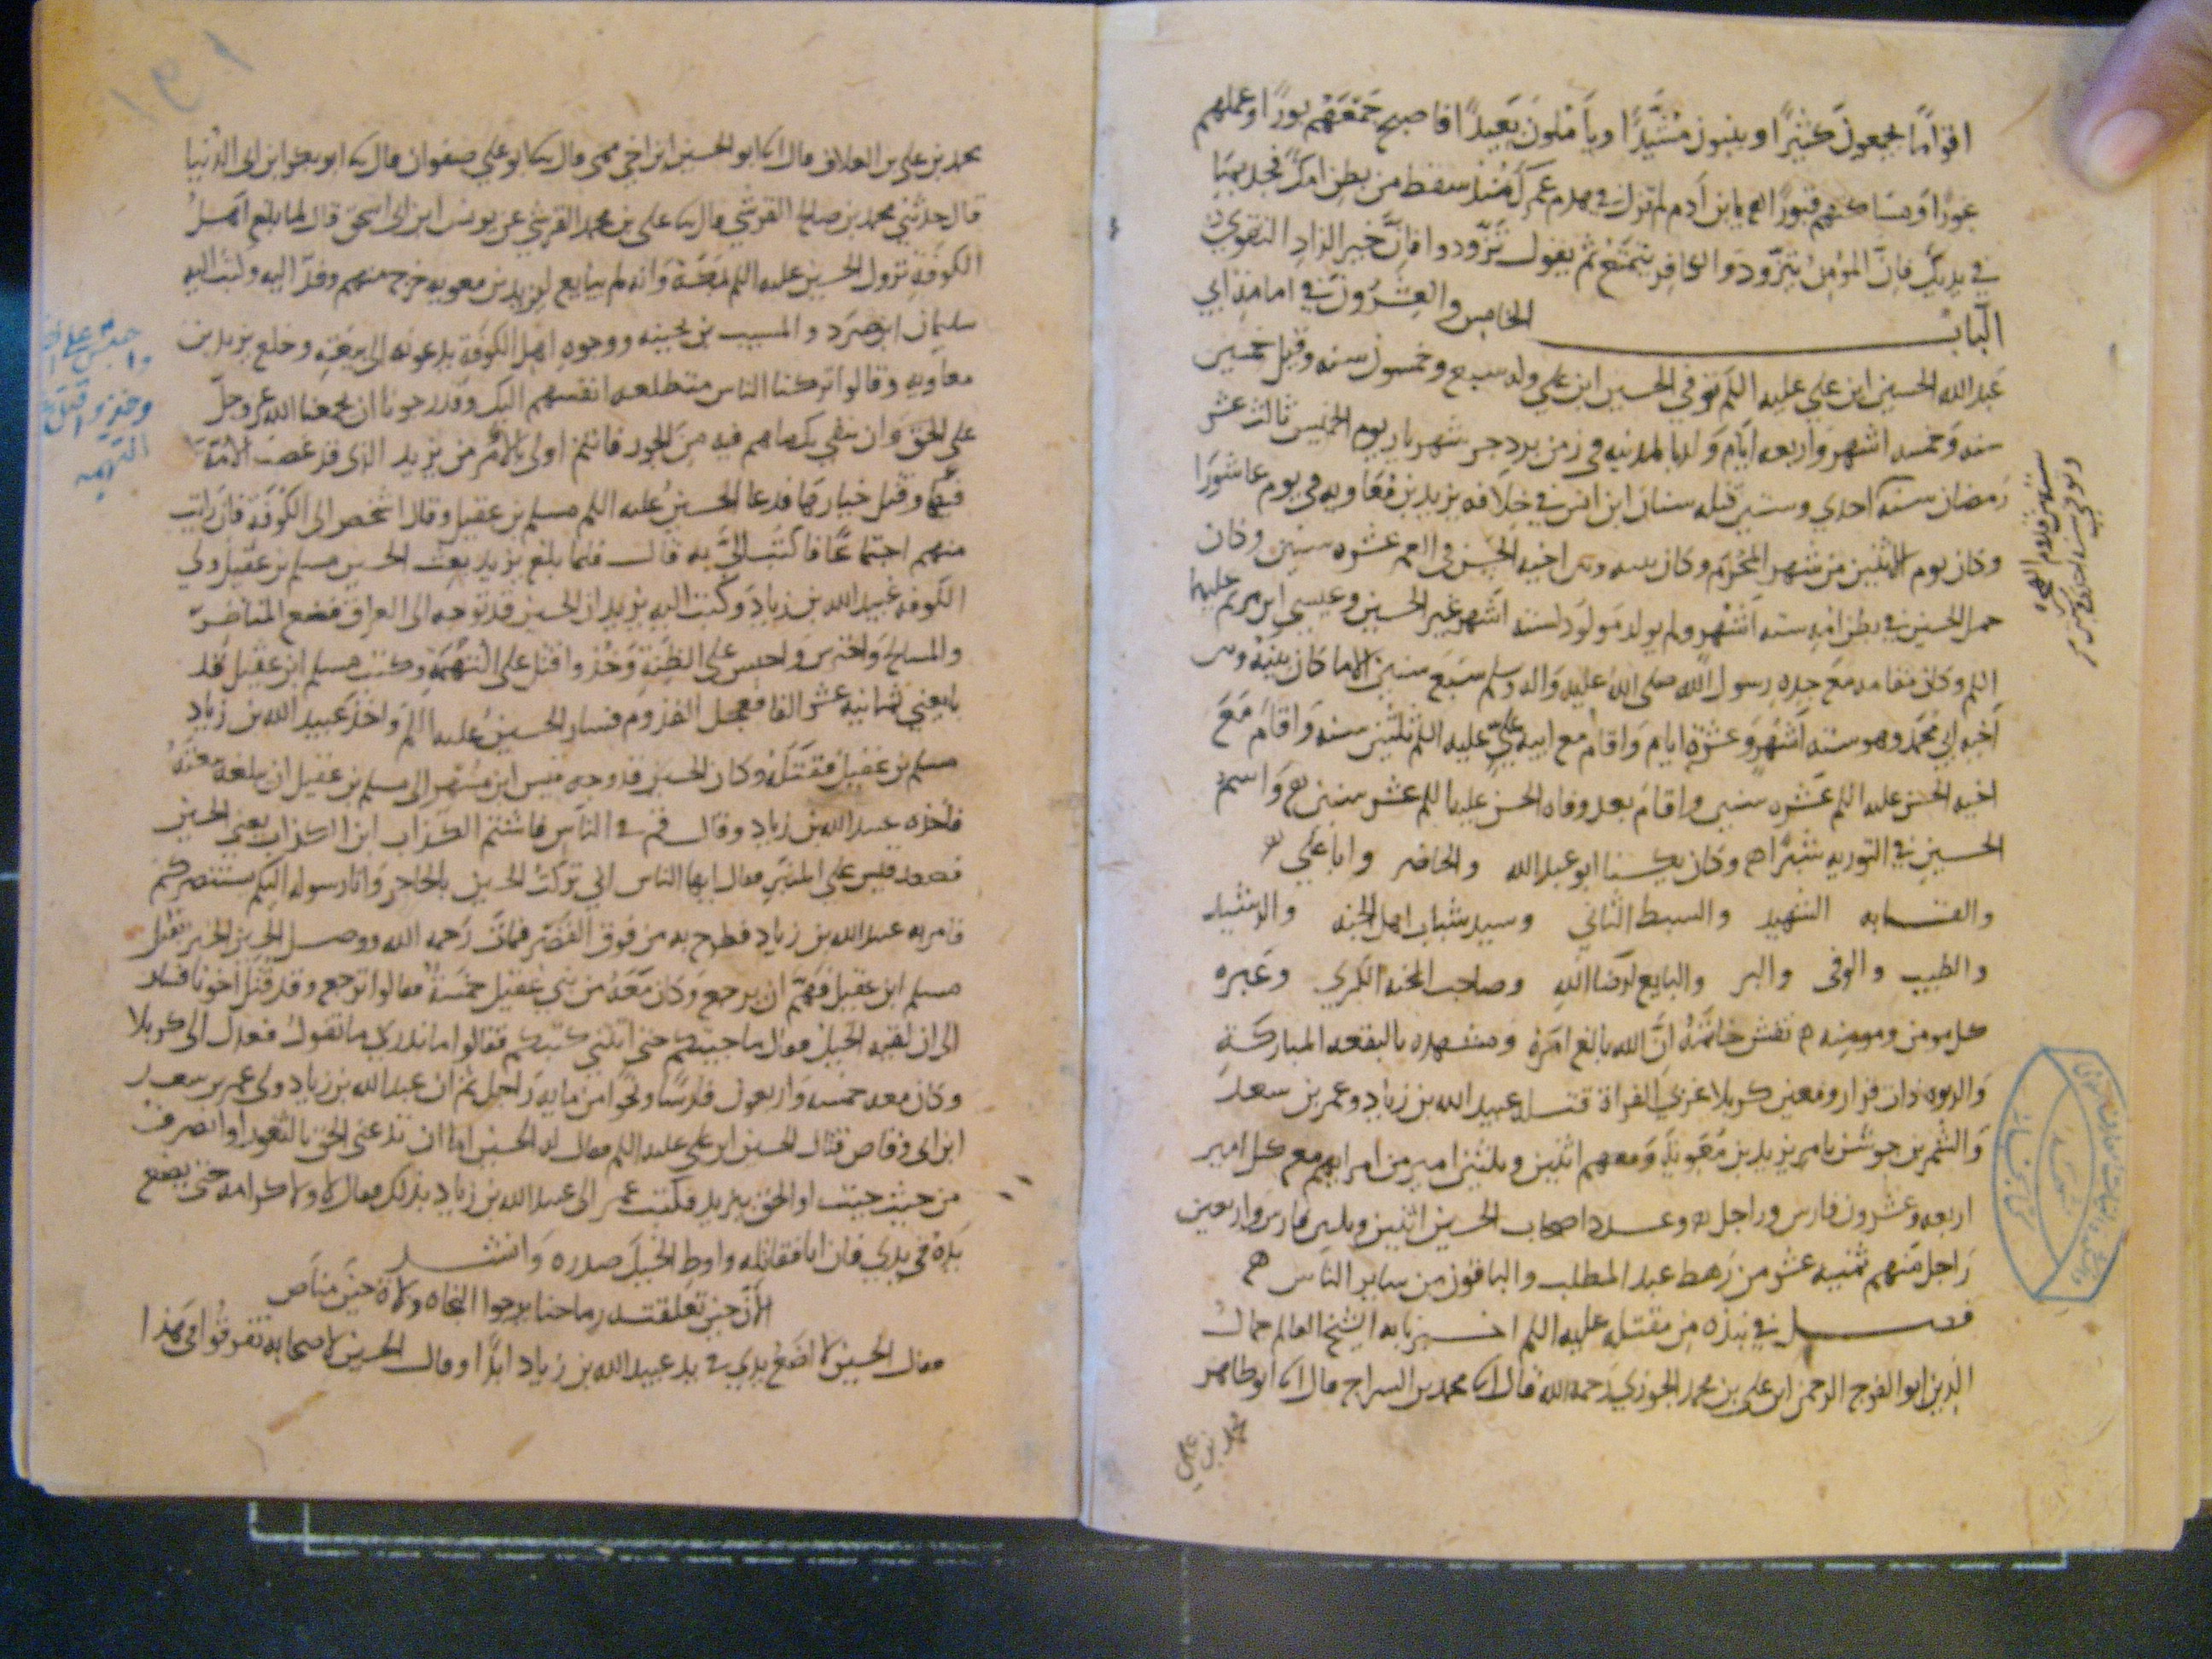 اقوامًا يجمعون كثيرًا ويبنون مشيّدًا ويأملون بعيدًا فاصبح جمعهم بورًا وعملهم
غرورًا ومساكنهم قبورًا يا ابن آدم لم تزل في هدم عمرك منذ سقطت من بطن امك فخذ مما
في يديك فان المؤمن يتزود والكافر يتمتع ثم يقول تزودوا فان خير الزاد التقوى
الباب الخامس والعشرون في امامة ابي
عبد الله الحسين ابن علي عليه السلم توفي الحسين ابن علي وله سبع وخمسون سنه وقيل خمسين
سنه وخمسه اشهر واربعه ايام ولد بالمدينه في زمن يزدجر شهريار يوم الخميس ثالث عشر
رمضان سنه احدي وستين قتله سنان ابن انس في خلافه يزيد بن معاويه في يوم عاشورا
وكان يوم الاثنين من شهر المحرم وكان بينه وبين اخيه الحسن في العمر عشره سنين وكان
حمل الحسين في بطن امه سته اشهر ولم يولد مولود لسته اشهر غير الحسين وعيسي ابن مريم عليهما
السلم وكان مقامه مع جده رسول الله صلى الله عليه واله وسلم سبع سنين الا ما كان بينه وبين
اخيه ابي محمد وهو سته اشهر وعشرة ايام واقام مع ابيه علي عليه السلم ثلثين سنه واقام مع
اخيه الحسن عليه السلم عشره سنين واقام بعد وفاه الحسن عليه السلم عشر سنين واسم
الحسين في التوريه شبيرا وكان يكنا ابو عبد الله والخاص وابا علي
والقابه الشهيد والسبط الثاني وسيد شباب اهل الجنه والرشيد
والطيب والوفى والبر والبايع لرضا الله وصاحب المحنه الكبري وعبره
كل مومن ومومنه نقش خاتمه ان الله بالغ امره ومشهده بالبقعه المباركة
والربوه ذات قرار ومعين كربلا غربي الفراة قتله عبيد الله بن زياد وعمر بن سعد
والشمر بن جوشن بامر يزيد بن معوية ومعهم اثنين وثلثين امير من امرايهم مع كل امير
اربعه وعشرون فارس وراجل وعدد اصحاب الحسين اثنين وثلثين فارس واربعين
راجل منهم ثمنيه عشر من رهط عبد المطلب والباقون من ساير الناس
فصل في نبذه من مقتله عليه السلم اخبرنا به الشيخ العالم جمال
الدين ابو الفرج الرحمن ابن علي بن محمد الجوزي رحمه الله قال انا محمد بن السراج قال انا ابو طاهر
محمد بن علي
محمد بن علي بن العلاف قال انا ابو الحسين ابن اخي ممى قال ثنا ابو علي صفوان قال ثنا ابو بكر ابن ابي الدنيا
قال حدثني محمد بن صالح القرشي قال ثنا علي بن محمد القرشي عن يونس ابن ابي اسحق قال لما بلغ اهل
الكوفه نزول الحسين عليه السلم بمكة وانه لم يبايع ليزيد بن معويه خرج منهم وفد اليه وكتب اليه
سليمان ابن صرد والمسيب بن نجبه ووجوه اهل الكوفة يدعونه الى بيعته وخلع يزيد بن
معاويه وقالوا تركنا الناس متطلعه انفسهم اليك وقد رجونا ان يجمعنا الله عز وجل
على الحق وان ينفي بك ما هم فيه من الجور فانتم اولى بالامر من يزيد الذي قد غصب الامة
فيئها وقتل خيارها فدعا الحسين عليه السلم مسلم بن عقيل وقال اشخص الى الكوفة فان رايت
منهم اجتماعًا فاكتب الي به قال فلما بلغ يزيد بعث الحسين مسلم بن عقيل ولي
الكوفه عبيد الله بن زياد وكتب اليه يزيد ان الحسين قد توجه الى العراق فضع المناضر
والمسالح واحترس واحبس على الظنة وخذ واقتل على التهمة وكتب مسلم ابن عقيل قد
بايعني ثمانيه عشر الفا فعجل القدوم فسار الحسين عليه السلم واخذ عبيد الله بن زياد
مسلم بن عقيل فقتله وكان الحسين قد وجه قيس ابن مسهر الى مسلم بن عقيل ان يبلغه
فاخذه عبيد الله بن زياد وقال قم في الناس فاشتم الكذاب ابن الكذاب يعني الحسين
فصعد قيس على المنبر فقال ايها الناس اني تركت الحسين بالحاجر وانا رسوله اليكم يستنصركم
فامر به عبيد الله بن زياد فطرح به من فوق القصر فمات رحمه الله ووصل الحسين الخبر بقتل
مسلم ابن عقيل فهم ان يرجع وكان معه من بني عقيل خمسة فقالوا ترجع وقد قتل اخونا فسار
الى ان لقيه الخيل فقال ما جيتكم حتى اتتني كتبكم فقالوا ما ندري ما تقول فعدل الى كربلا
وكان معه خمسه واربعون فارسًا ونحوا من مايه راجل ثم ان عبيد الله بن زياد ولى عمر بن سعد
ابن ابي وقاص قتال الحسين ابن علي عليه السلم فقال له الحسين اما ان تدعني الحق بالثغور او انصرف
من حيث جيت او الحق بيزيد فكتب عمر الى عبيد الله بن زياد بذلك فقال لا ولا كرامه حتى يضع
يده في يدي فان ابا فقاتله واوط الخيل صدره وانشد
الان حين تعلقته رماحنا يرجوا النجاه ولاة حين مناص
فقال الحسين لا اضع يدي في يد عبيد الله بن زياد ابدًا وقال الحسين لاصحابه تفرقوا في هذا